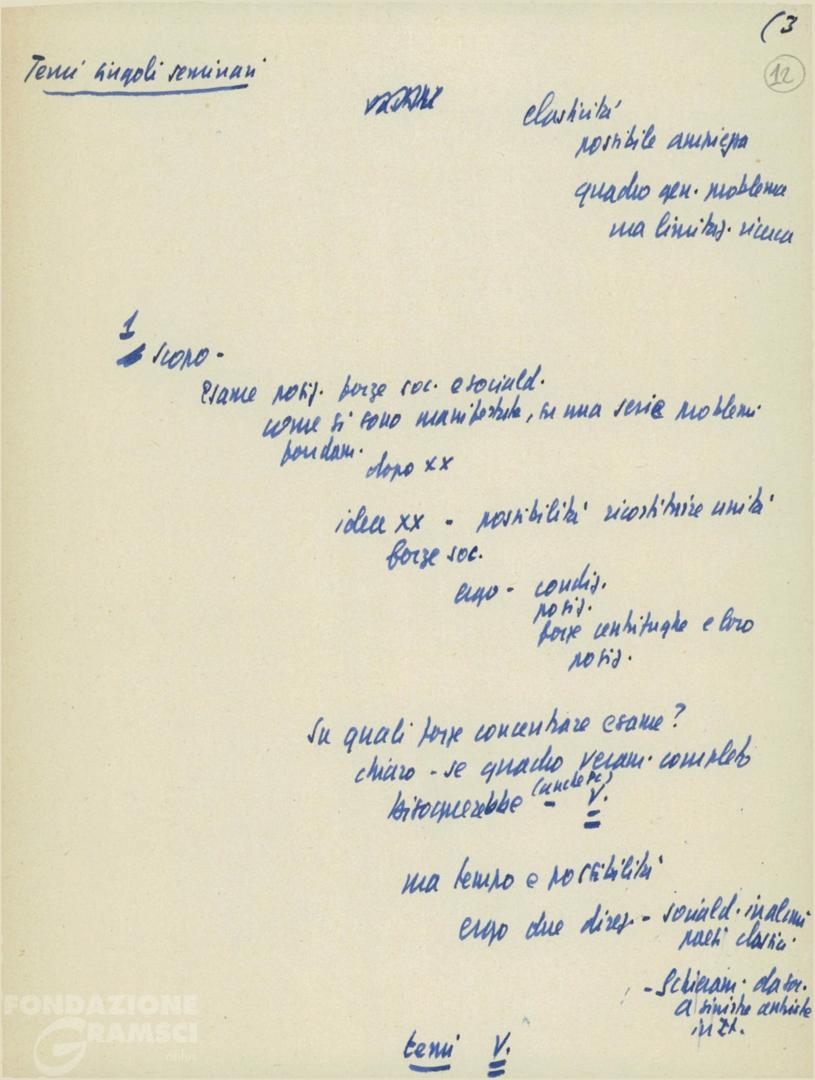 (3
12
Temi singoli seminari
elasticità
possibile ampiezza
quadro gen. problema
ma limitaz. ricerca
1
scopo -
esame posiz. forze soc. e sociald.
come si sono manifestate, su una serie problemi
fondam.
dopo XX
idea XX - possibilità ricostituire unità
forze soc.
ergo - condiz.
posiz.
forze centrifughe e loro
posiz.
Su quali forze concentrare esame?
chiaro - se quadro veram. completo
bisognerebbe V.
ma tempo e possibilità
ergo due direz. - sociald. in alcuni
paesi classici
- Schieram. da soc.
a sinistra
in It.
temi V.
FONDAZIONE
GRAMSCI
onlus